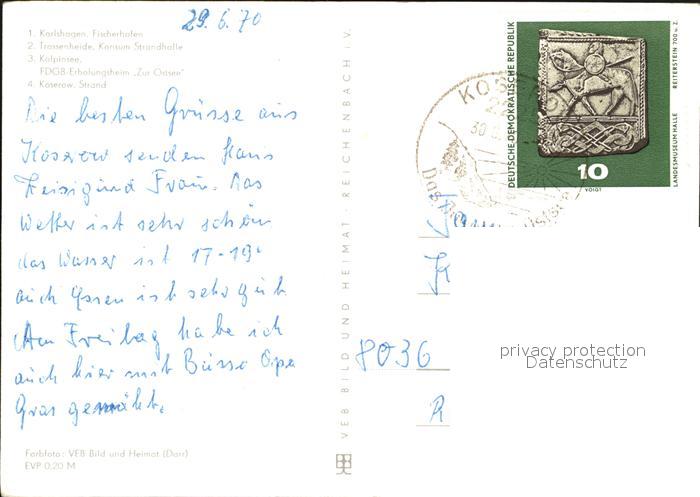 29.6.70
1. Karlshagen, Fischerhafen
2. Trassenheide, Konsum Strandhalle
3. Kölpinsee,
FDGB-Erholungsheim „Zur Ostsee"
4. Koserow, Strand
Die besten Grüsse aus
Koserow senden Hans
und Frau. Das
Wetter ist sehr schön
das Wasser ist 17-19°
auch Essen ist sehr gut.
Am Freitag habe ich
auch hier mit Büsso Opa
Gras gemäht.
Farbfoto: VEB Bild und Heimat (Darr)
EVP 0,20 M
VEB BILD UND HEIMAT · REICHENBACH i.V.
DEUTSCHE DEMOKRATISCHE REPUBLIK
10
VOIGT
LANDESMUSEUM HALLE
REITERSTEIN 700 u. Z.
KOS
30
8036
R
privacy protection
Datenschutz